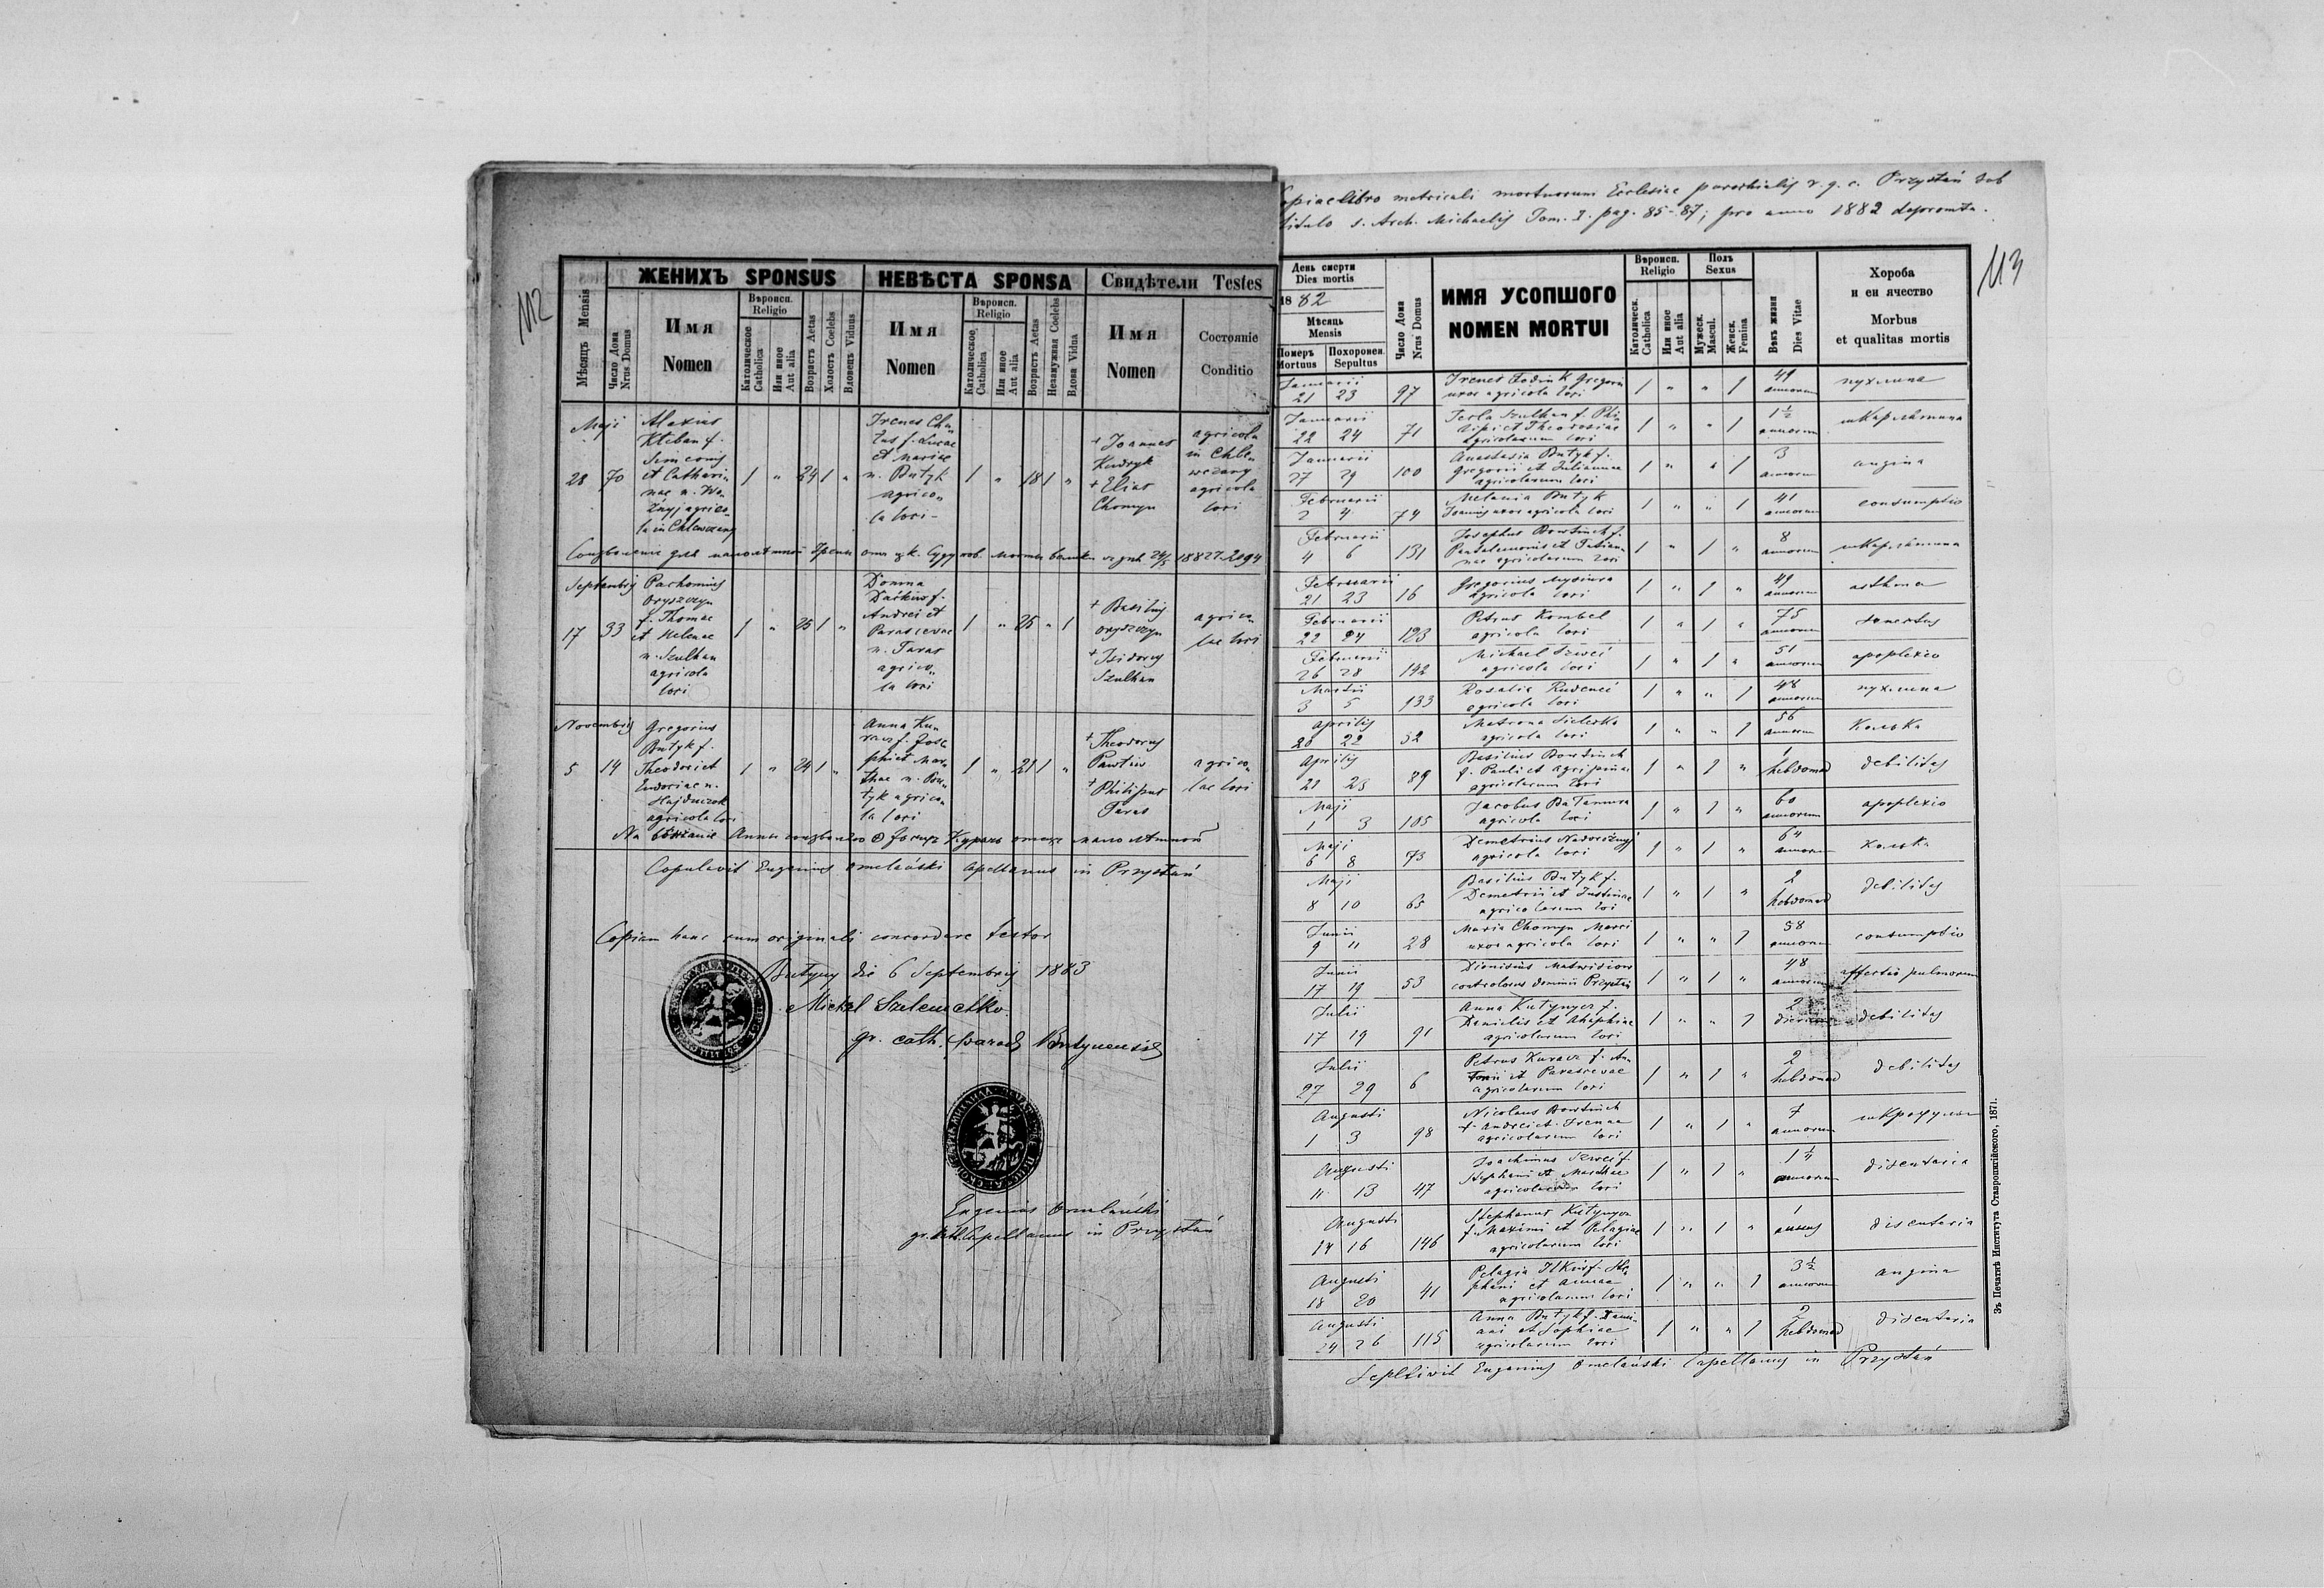 112
ЖЕНИХЪ SPONSUS
НЕВѢСТА SPONSA
Свидѣтели Testes
Мѣсяцъ Mensis
Число Дома
Nrus Domus
Имя
Nomen
Вѣроисп.
Religio
Католическое
Catholica
Или иное
Aut alia
Возрастъ Aetas
Холостъ Coelebs
Вдовецъ Viduus
Имя
Nomen
Вѣроисп.
Religio
Католическое
Catholica
Или иное
Aut alia
Возрастъ Aetas
Незамужная Coelebs
Вдова Vidua
Имя
Nomen
Состояніе
Conditio
Maji
28 70
Alexius
Kliban f.
Simeonis
et Cathari-
nae n. Wo-
źnyj agrico-
la in Chlewczany
1 " 24 1 "
Irenes Chu-
tas f. Lucae
et Mariae
n. Butyk
agrico-
la loci
1 " 18 1 "
+ Joannes
Kudryk
+ Elias
Chomyn
agricola
in Chle-
wczany
agricola
loci
1882 г. 2094
Septembris
17 33
Pachomius
Oryszczyn
f. Thomae
et Helenae
n. Szulhan
agricola
loci
1 " 25 1 "
Domna
Daćkiw f.
Andrei et
Parascevae
n. Taras
agrico-
la loci
1 " 25 " 1
+ Basilius
Oryszczyn
+ Isidorus
Szulhan
agrico-
lae loci
Novembris
5 14
Gregorius
Butyk f.
Theodori et
Eudociae n.
Hajduczok
agricola loci
1 " 24 1 "
Anna Ku-
racz f. Jose-
phi et Mar-
thae n. Bu-
tyk agrico-
la loci
1 " 21 1 "
+ Theodorus
Pawtiw
+ Philipus
Taras
agrico-
lae loci
Copulavit Eugenius Omelański Capellanus in Przystań
Copiam hanc cum originali concordare testor
Butyny die 6 Septembris 1883
Michael Szelemetko
gr. cath. paroch Butynensis
Eugenius Omelański
gr. cath. Capellanus in Przystań
Copia e libro metricali mortuorum Ecclesiae parochialis r. g. c. Przystań sub
titulo s. Arch. Michaelis Tom. I. pag. 85-87; pro anno 1882 depromta.
113
День смерти
Dies mortis
1882
Мѣсяць
Mensis
Померъ
Mortuus
Похоронен.
Sepultus
Число Дома
Nrus Domus
ИМЯ УСОПШОГО
NOMEN MORTUI
Вѣроисп.
Religio
Католическ.
Catholica
Или иное
Aut alia
Полъ
Sexus
Мужеск.
Mascul.
Женск.
Femina
Вѣкъ жизни
Dies Vitae
Хороба
и еи ячество
Morbus
et qualitas mortis
Januarii
21 23 97
Irenes Fedink Gregorii
uxor agricola loci
1 " " 1
49
annorum
пухлина
Januarii
22 24 71
Tecla Szulhan f. Phi-
lipi et Theodosiae
agricolarum loci
1 " " 1
1 1/2
annorum
шкарлатина
Januarii
27 29 100
Anastasia Butyk f.
Gregorii et Julianna
agricolarum loci
1 " " 1
3
annorum
angina
Februarii
2 4 74
Melania Butyk
Joannis uxor agricola loci
1 " " 1
41
annorum
consumptio
Februarii
4 6 131
Josephus Bowtinch f.
Pantalemonis et Tatian-
nae agricolarum loci
1 " 1 "
8
annorum
шкарлатина
Februarii
21 23 16
Gregorius Mysiura
agricola loci
1 " 1 "
49
annorum
asthma
Februarii
22 24 123
Petrus Kombel
agricola loci
1 " 1 "
75
annorum
senectus
Februarii
26 28 142
Michael Szweć
agricola loci
1 " 1 "
51
annorum
apoplexio
Martii
3 5 133
Rosalia Rudeneć
agricola loci
1 " " 1
48
annorum
пухлина
Aprilis
20 22 52
Matrona Sielecka
agricola loci
1 " " 1
56
annorum
Колька
Aprilis
21 23 89
Basilius Bowtinch
f. Pauli et Agripinae
agricolarum loci
1 " 1 "
1
hebdomad
debilitas
Maji
1 3 105
Jacobus BaTamura
agricola loci
1 " 1 "
60
annorum
apoplexio
Maji
6 8 73
Demetrius Nadorożnyj
agricola loci
1 " 1 "
64
annorum
Колька
Maji
8 10 65
Basilius Butyk f.
Demetrii et Justinae
agricolarum loci
1 " 1 "
2
hebdomad
debilitas
Junii
9 11 28
Maria Chomyn Marci
uxor agricola loci
1 " " 1
58
annorum
consumptio
Junii
17 19 53
Dionisius Matwisiow
controlorus dominii Przystań
1 " 1 "
48
annorum
affectio pulmorum
Julii
17 19 91
Anna Kutynycz f.
Danielis et Ahaphiae
agricolarum loci
1 " " 1
2
dierum
debilitas
Julii
27 29 6
Petrus Kuracz f. An-
tonii et Parascevae
agricolarum loci
1 " 1 "
2
hebdomad
debilitas
Augusti
1 3 98
Nicolaus Bowtinch
f. Andrei et Irenae
agricolarum loci
1 " 1 "
7
annorum
шкрофулы
Augusti
11 13 47
Joachimus Szweć f.
Stephani et Marthae
agricolarum loci
1 " 1 "
1 1/4
annorum
disentaria
Augusti
14 16 146
Stephanus Kutynycz
f. Maximi et Pelagiae
agricolarum loci
1 " 1 "
1
annus
disentaria
Augusti
18 20 41
Pelagia Ilkiw f. Ste-
phani et Annae
agricolarum loci
1 " " 1
3 1/2
annorum
angina
Augusti
24 26 115
Anna Butyk f. Dami-
ani et Sophiae
agricolarum loci
1 " " 1
2
hebdomad
disentaria
Sepelivit Eugenius Omelański Capellanus in Przystań
Зъ Печатнѣ Института Ставропигійского, 1871.